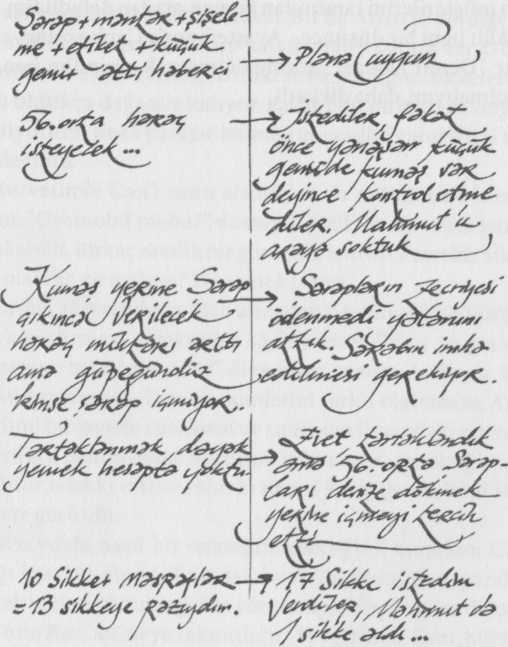 Şarap + mantar + şişele-
me + etiket + küçük
gemi + atlı haberci
→ Plana uygun
56. orta haraç
isteyecek ...
→ İstediler fakat
önce yanaşan küçük
gemide kumaş var
deyince kontrol etme
diler. Mahmut'u
araya soktuk
Kumaş yerine Şarap
çıkınca verilecek
haraç miktarı arttı
ama güpegündüz
kimse şarap içmiyor.
→ Şarapların zecriyesi
ödenmedi yalanını
attık. Şarabın imha
edilmesi gerekiyor.
Tartaklanmak dayak
yemek hesapta yoktu
→ Evet tartaklandık
ama 56. orta Şarap-
ları denize dökmek
yerine içmeyi tercih
etti
10 Sikke masraflar
= 13 sikkeye razıydım.
→ 17 Sikke istedim
Verdiler, Mahmut da
1 sikke aldı ...